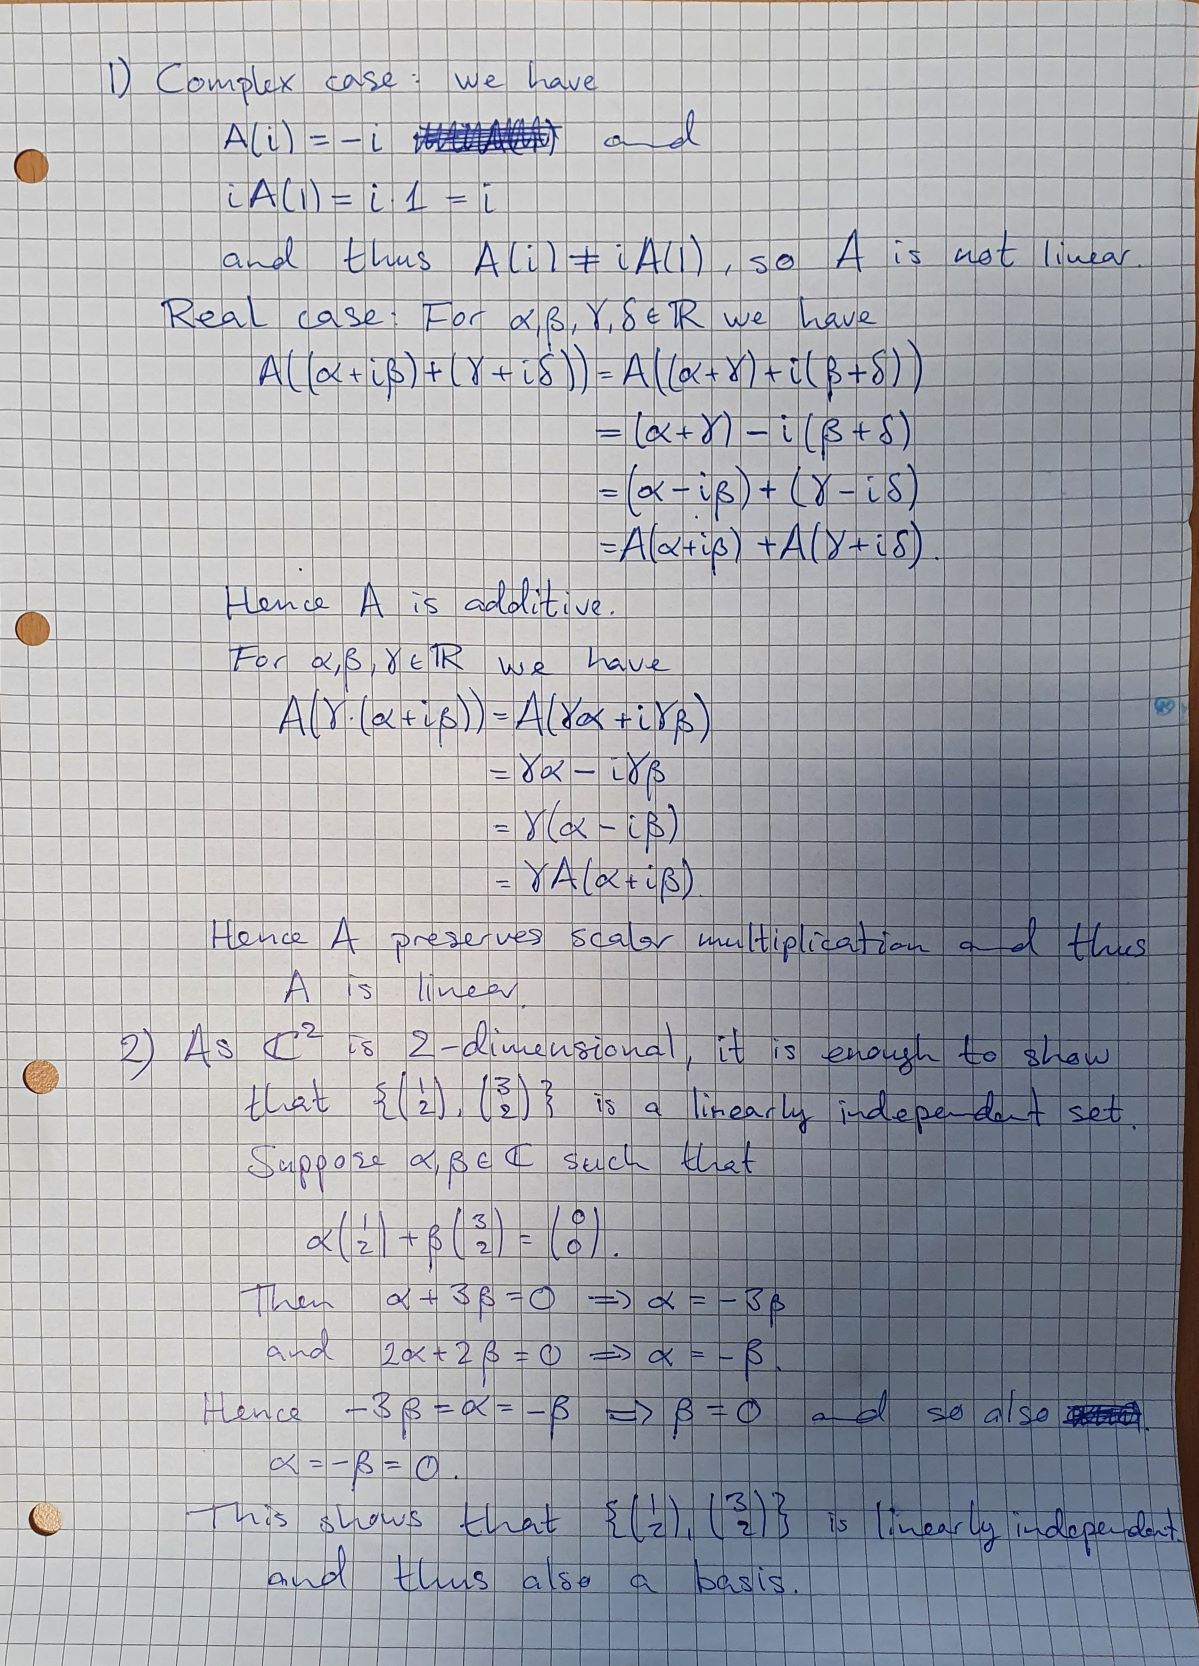 1) Complex case: we have
A(i) = -i and
iA(1) = i·1 = i
and thus A(i) ≠ iA(1), so A is not linear.
Real case: For α,β,γ,δ∈ℝ we have
A((α+iβ)+(γ+iδ)) = A((α+γ)+i(β+δ))
= (α+γ) - i(β+δ)
= (α-iβ) + (γ-iδ)
= A(α+iβ) + A(γ+iδ).
Hence A is additive.
For α,β,γ∈ℝ we have
A(γ·(α+iβ)) = A(γα+iγβ)
= γα - iγβ
= γ(α-iβ)
= γA(α+iβ).
Hence A preserves scalar multiplication and thus
A is linear.
2) As ℂ² is 2-dimensional, it is enough to show
that {(1 2), (3 2)} is a linearly independent set.
Suppose α,β∈ℂ such that
α(1 2) + β(3 2) = (0 0).
Then α+3β=0 ⟹ α = -3β
and 2α+2β=0 ⟹ α = -β.
Hence -3β=α=-β ⟹ β=0 and so also
α=-β=0.
This shows that {(1 2), (3 2)} is linearly independent
and thus also a basis.